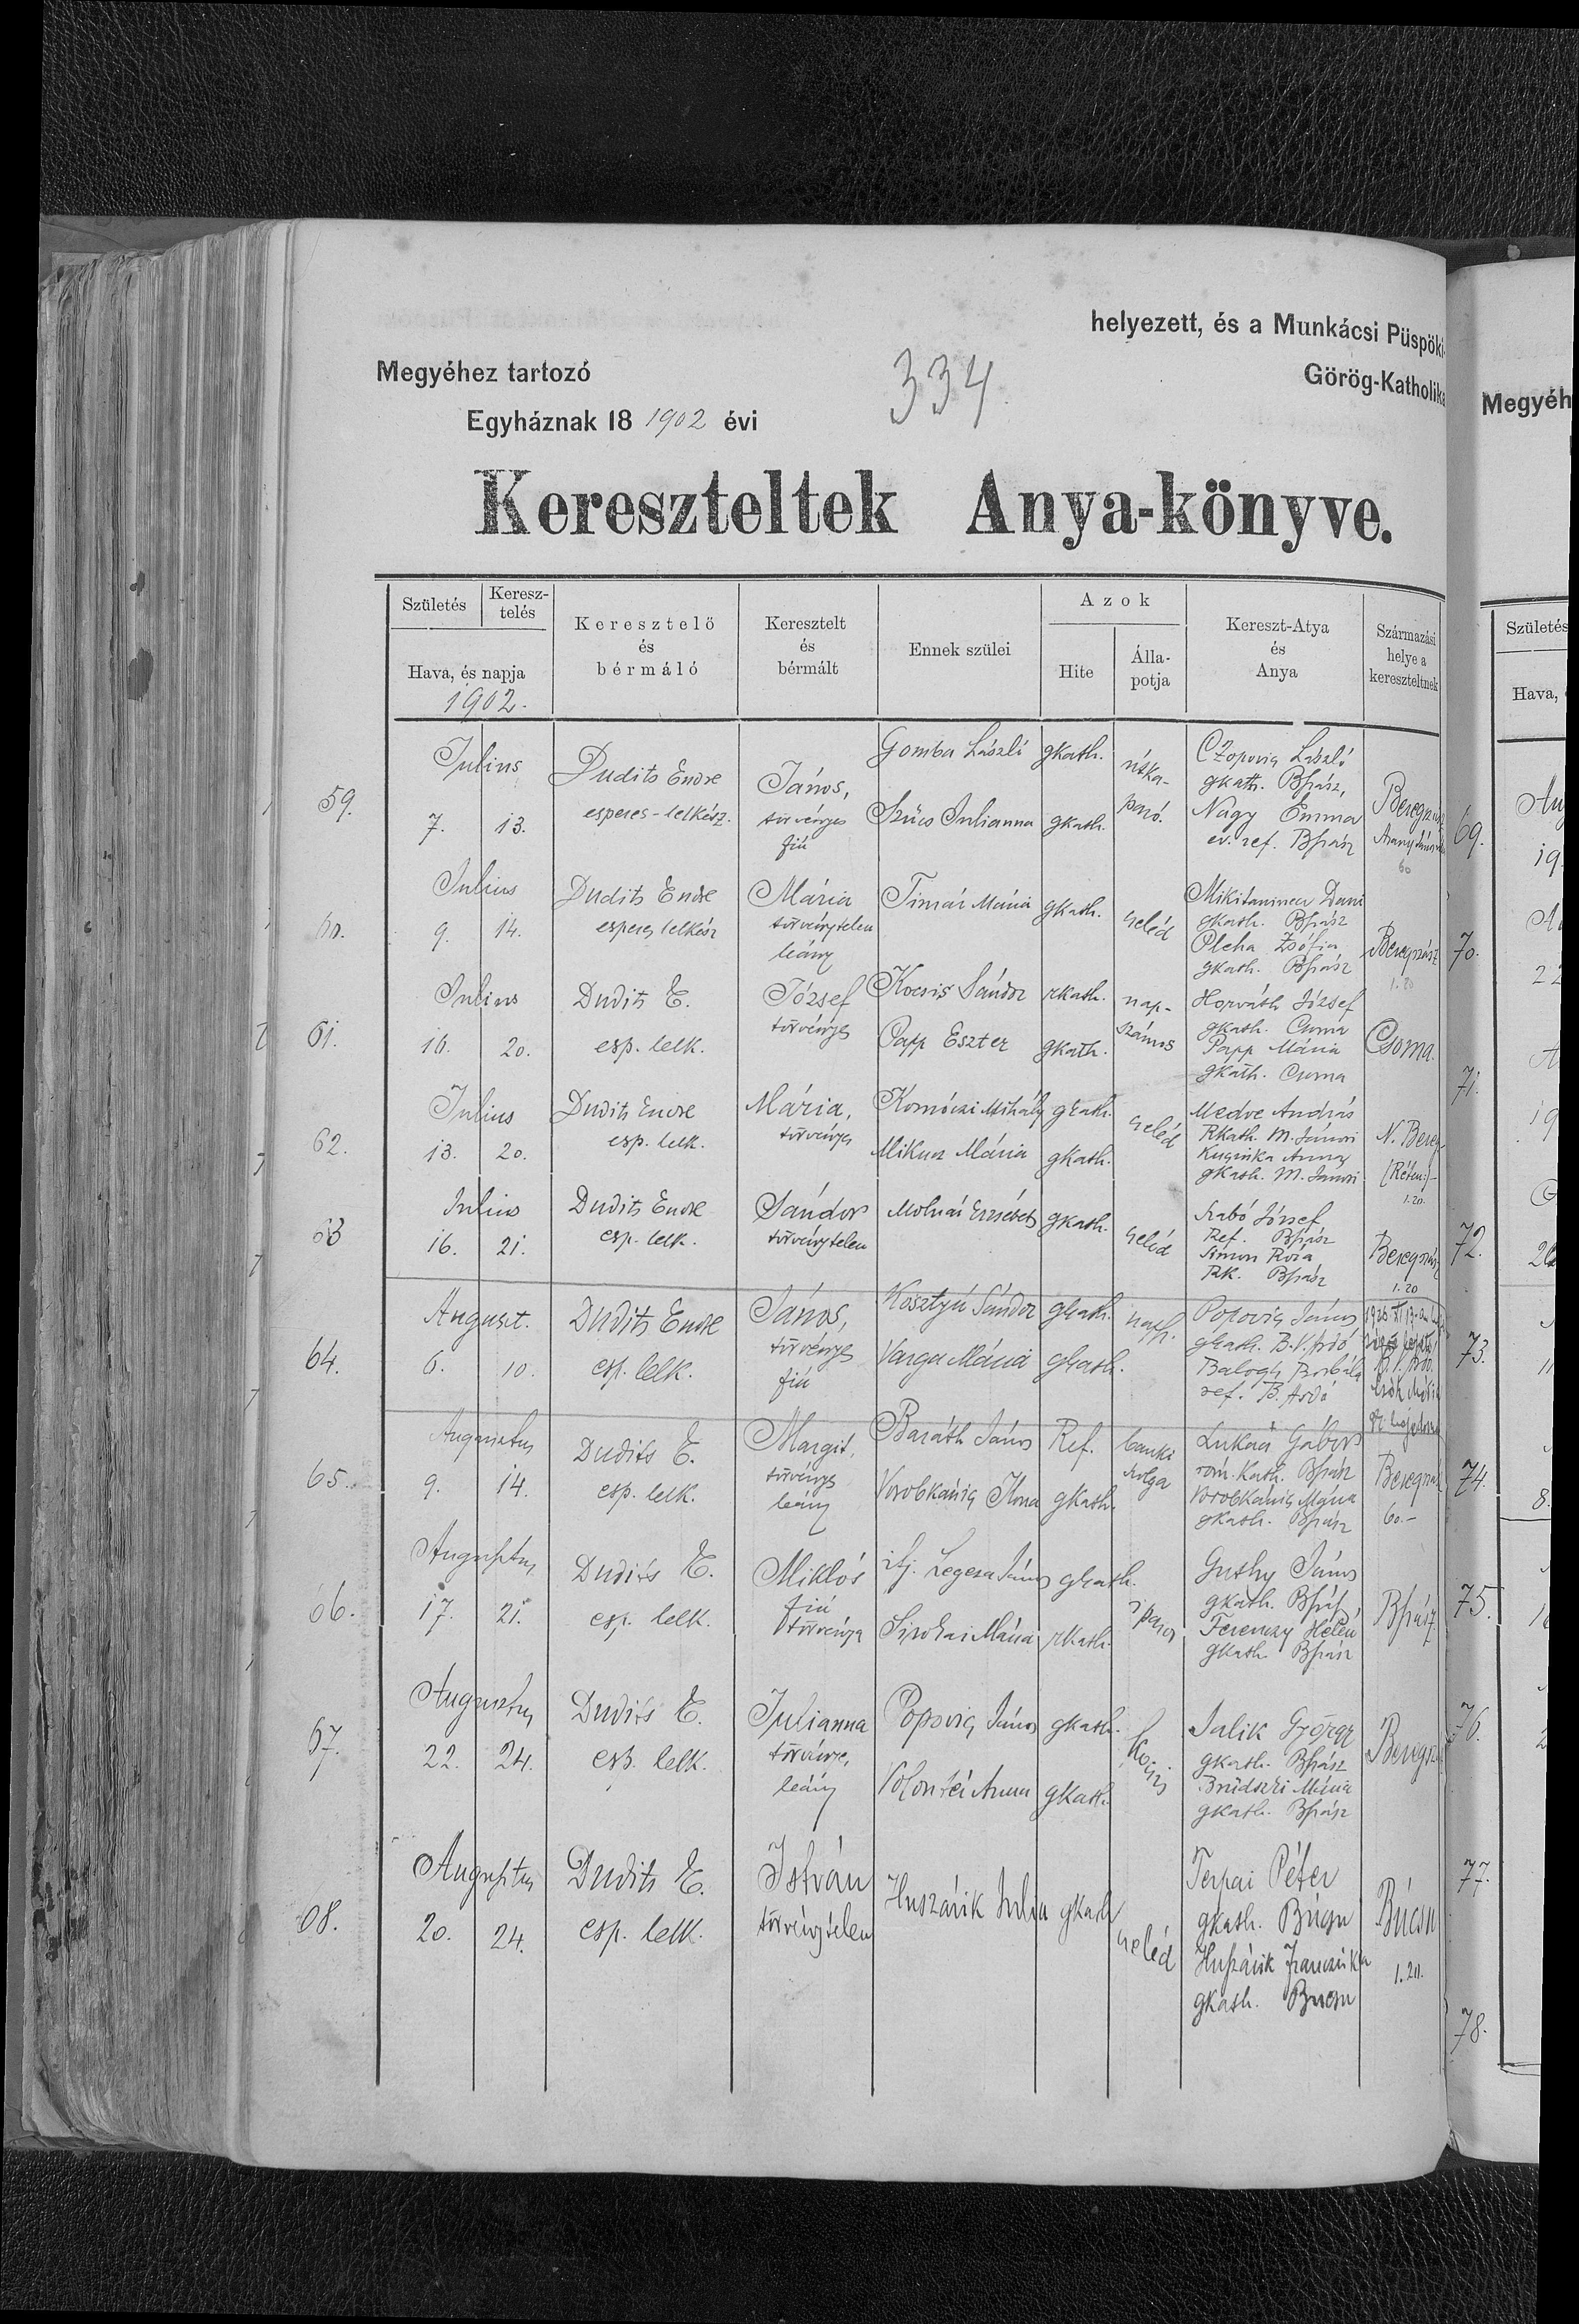 helyezett, és a Munkácsi Püspöki
Megyéhez tartozó
334
Görög-Katholika
Egyháznak 18 1902 évi
Kereszteltek Anya-könyve.
Születés
Keresz-
telés
Hava, és napja
1902.
Keresztelő
és
bérmáló
Keresztelt
és
bérmált
Ennek szülei
Azok
Hite
Álla-
potja
Kereszt-Atya
és
Anya
Származási
helye a
kereszteltnek
59.
Julius
7. 13.
Dudits Endre
esperes-lelkész.
János,
törvényes
fiú
Gomba László gkath.
Szücs Julianna gkath.
Czopovics László
gkath. Bhász,
Nagy Emma
ev. ref. Bhász
60
60.
Julius
9. 14.
Dudits Endre
esperes lelkész
Mária
törvénytelen
leány
Timár Mária gkath.
cseléd
gkath. Bhász
Pleha Zsófia
gkath. Bhász
Beregszász
1.20
61.
Julius
16. 20.
Dudits E.
esp. lelk.
József
törvényes
Kocsis Sándor rkath.
Papp Eszter gkath.
nap-
számos
Horváth József
gkath. Csoma
Papp Mária
gkath. Csoma
Csoma.
62.
Julius
13. 20.
Dudits Endre
esp. lelk.
Mária,
törvényes
Komóczi Mihály gkath.
Mária gkath.
cseléd
Medve András
Rkath. M. Jánosi
gkath. M. Jánosi
N. Bereg
1.20.
63
Julius
16. 21.
Dudits Endre
esp. lelk.
Sándor
törvénytelen
Molnár Erzsébet gkath.
cseléd
Szabó József
Ref. Bhász
Simon Róza
Rk. Bhász
Beregszász
1.20
64.
August.
6. 10.
Dudits Endre
esp. lelk.
János,
törvényes
fiú
Kosztyú Sándor gkath.
Varga Mária gkath.
Popovics János
gkath. B.V. Ardó
Balogh Borbála
ref. B. Ardó
65.
Augusztus
9. 14.
Dudits E.
esp. lelk.
Margit,
törvényes
leány
Baráth János Ref.
Ilona gkath.
banki
szolga
Lukács Gábor
róm. Kath. Bhász
Mária
gkath. Bhász
Beregszász
60.-
66.
Augusztus
17. 21.
Dudits E.
esp. lelk.
Miklós
fiú
törvényes
ifj. Legeza János gkath.
Mária rkath.
iparos
Guthy János
gkath. Bhász,
Ferenczy Helén
gkath. Bhász
Bhász
67.
Augusztus
22. 24.
Dudits E.
esp. lelk.
Julianna
törvényes,
leány
Popovics János gkath.
Anna gkath.
kocsis
Salik György
gkath. Bhász
Mária
gkath. Bhász
68.
Augusztus
20. 24.
Dudits E.
esp. lelk.
István
törvénytelen
Huszárik Julia gkath
cseléd
Terpai Péter
gkath. Búcsu
Huszárik Francziska
gkath. Bucsu
Búcsu
1.20.
Megyéh
Születés
Hava,
69.
70.
71.
72.
73.
74.
75.
76.
77.
78.